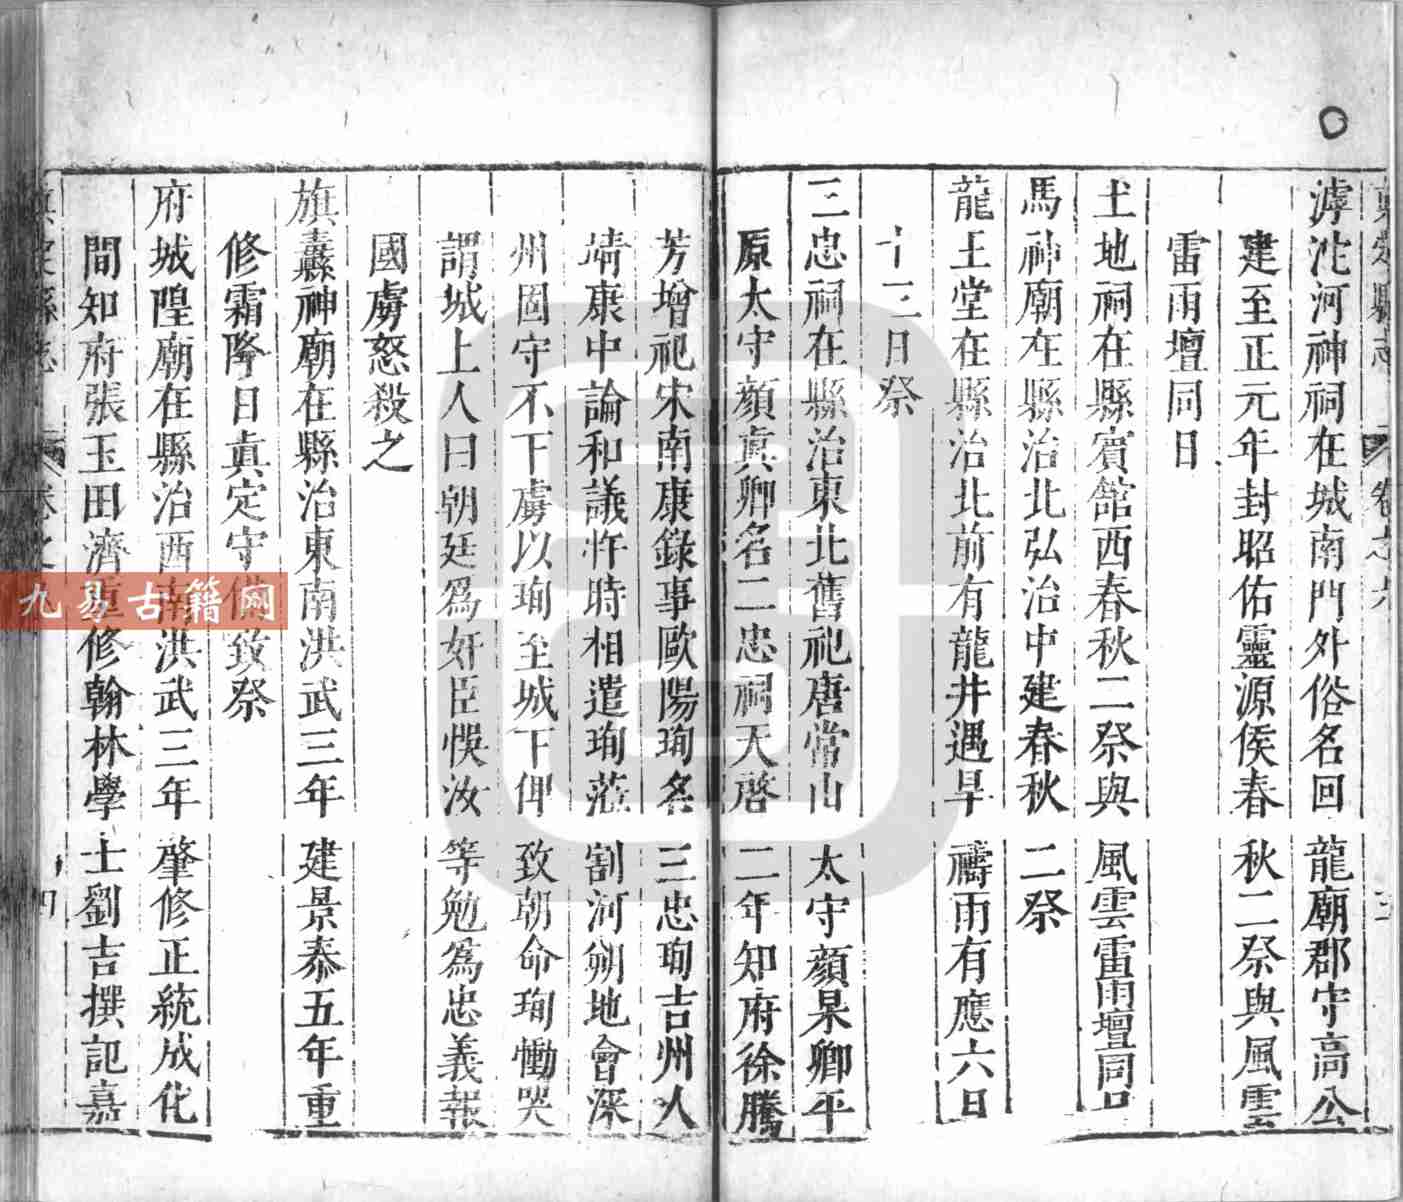 滹沱河神祠在城南門外俗名回龍廟郡守高公
建至正元年封昭佑靈源侯春秋二祭與風雲
雷雨壇同日
土地祠在縣賓館西春秋二祭與風雲雷雨壇同日
馬神廟在縣治北弘治中建春秋二祭
龍王堂在縣治北前有龍井遇旱禱雨有應六日
十三日祭
三忠祠在縣治東北舊祀唐常山太守顏杲卿平
原太守顏真卿名二忠祠天啓二年知府徐騰
芳增祀宋南康錄事歐陽珣名三忠珣吉州人
靖康中論和議忤時相遣珣蒞割河朔地會深
州固守不下虜以珣至城下俾致朝命珣慟哭
謂城上人曰朝廷爲奸臣悞汝等勉爲忠義報
國虜怒殺之
旗纛神廟在縣治東南洪武三年建景泰五年重
修霜降日眞定守備致祭
府城隍廟在縣治西南洪武三年肇修正統成化
間知府張玉田濟重修翰林學士劉吉撰記嘉
九易古籍網